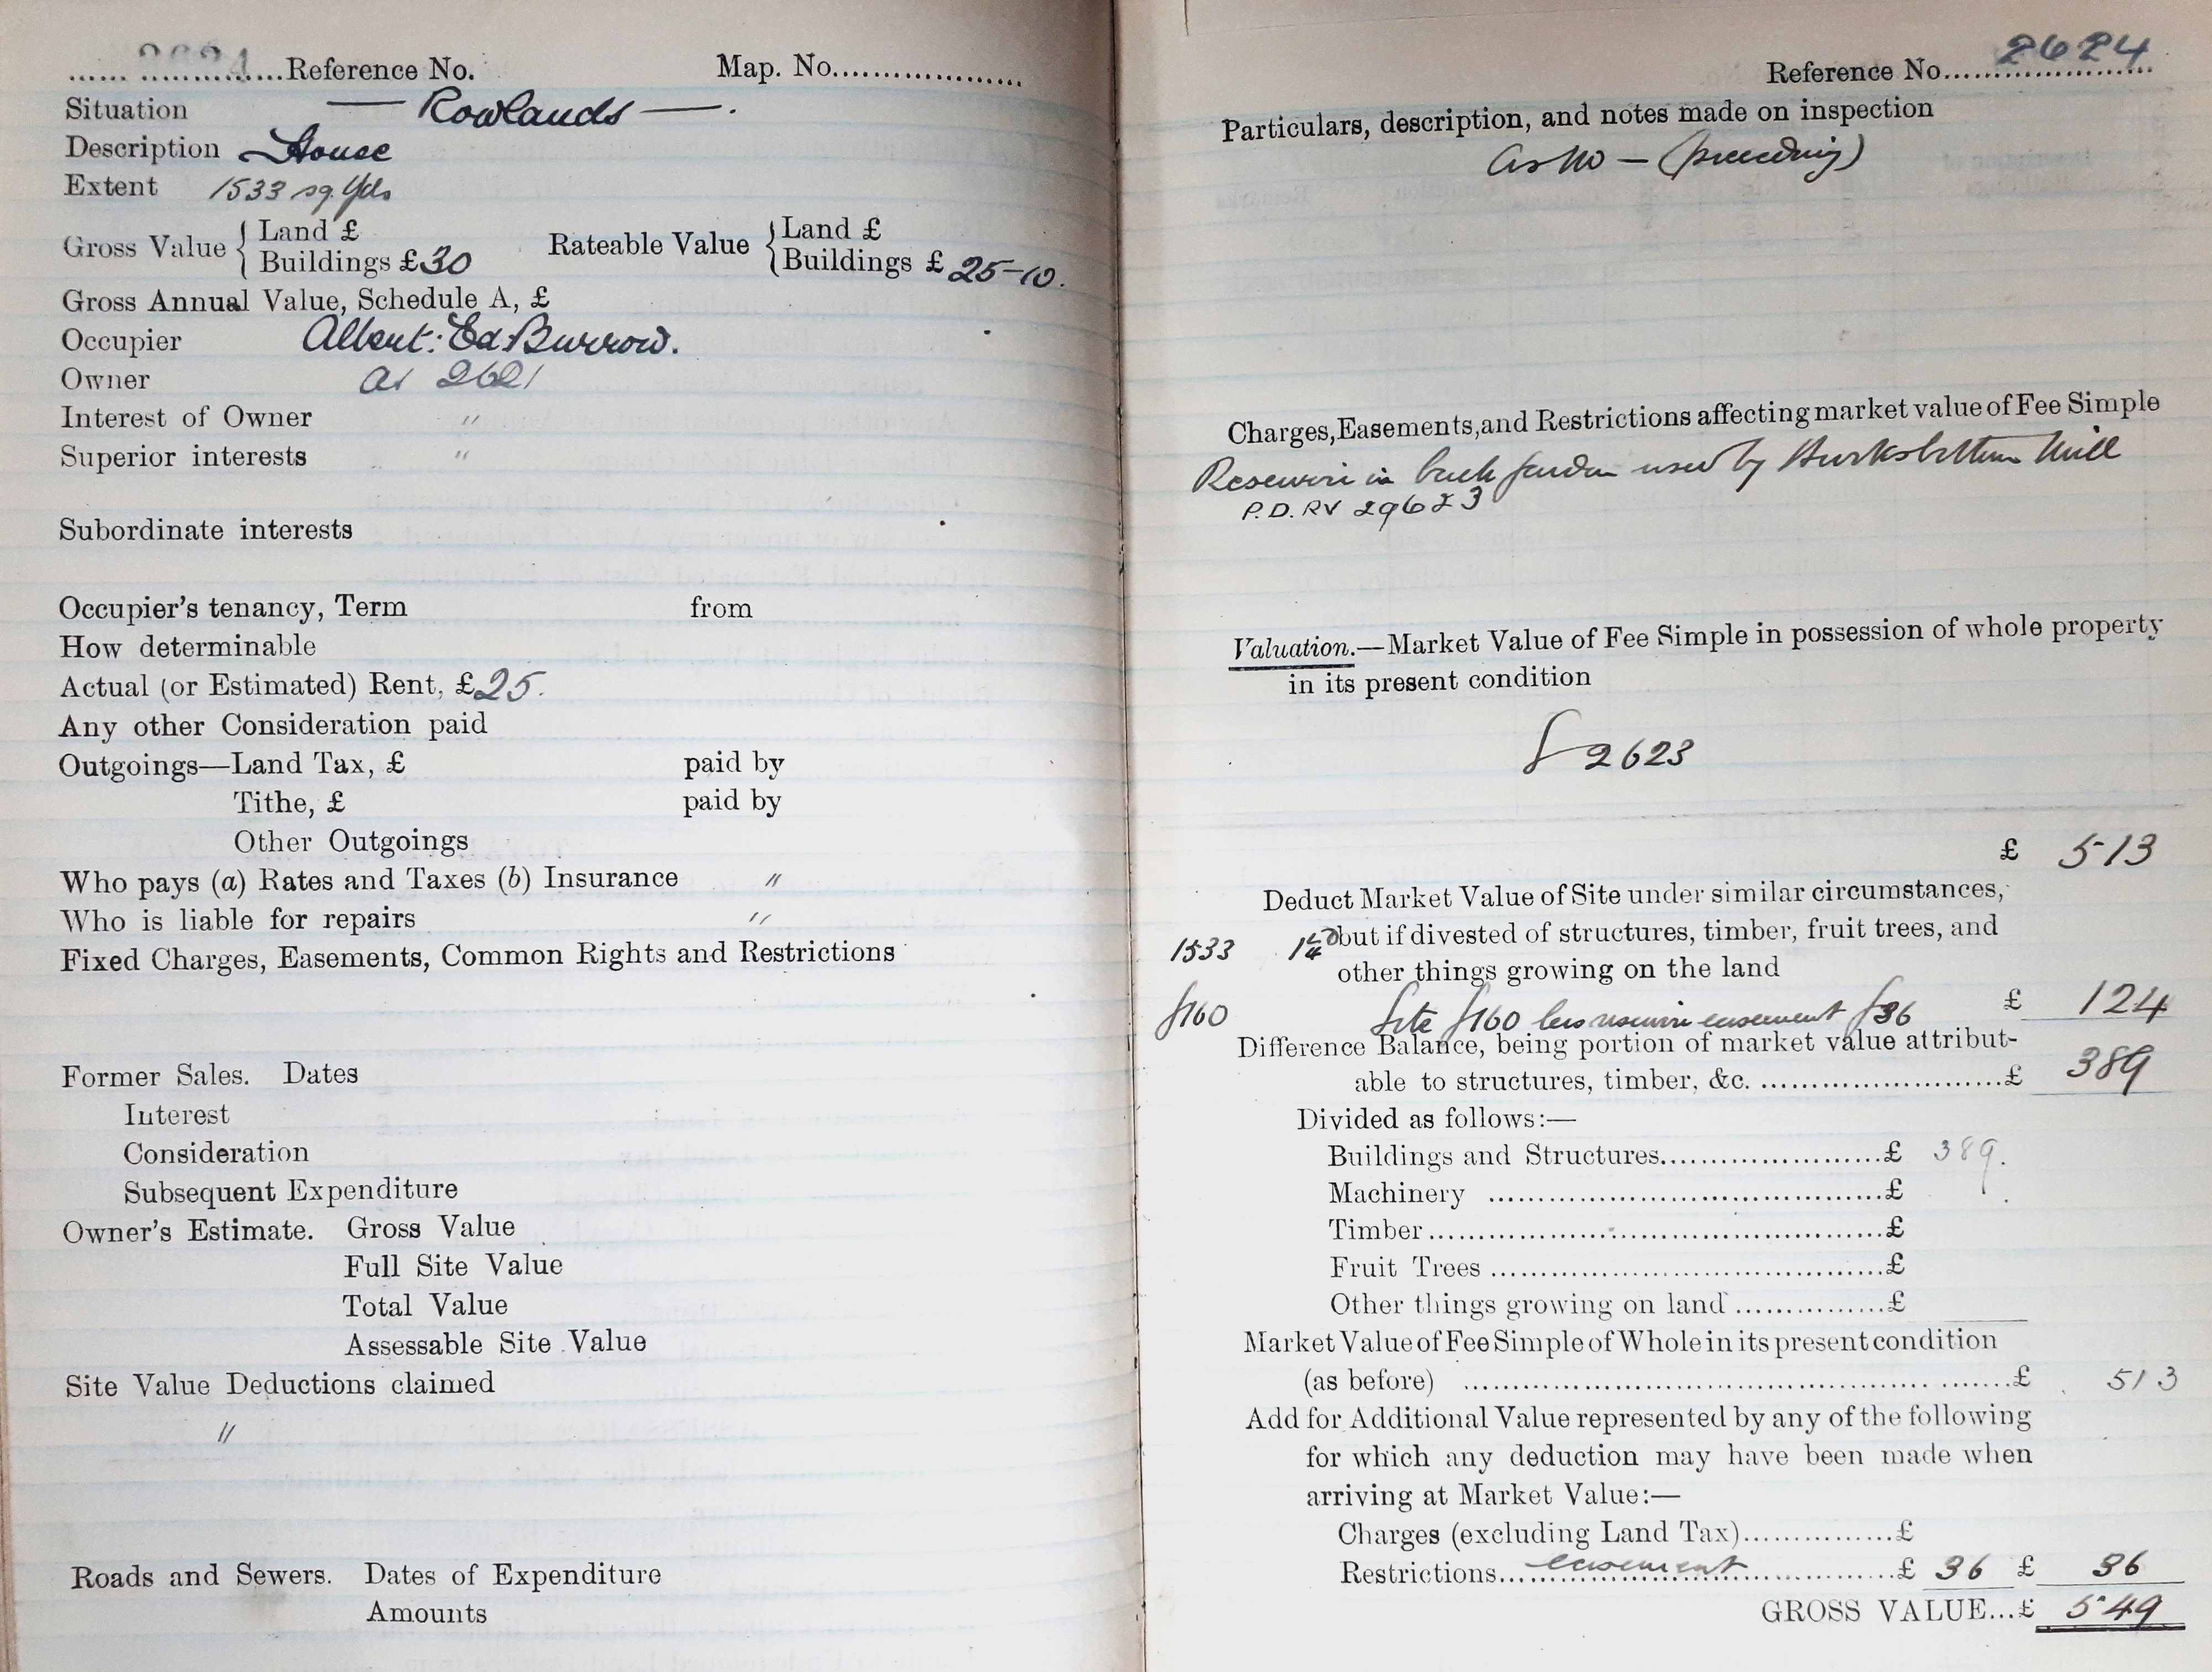 2624 Reference No. Map. No.
Situation — Rowlands —.
Description House
Extent 1533 sq. Yds
Gross Value { Land £ Rateable Value { Land £
Buildings £30 Buildings £ 25-10.
Gross Annual Value, Schedule A, £
Occupier Albert: Ed. Burrow.
Owner as 2621
Interest of Owner "
Superior interests "
Subordinate interests
Occupier's tenancy, Term from
How determinable
Actual (or Estimated) Rent, £25.
Any other Consideration paid
Outgoings—Land Tax, £ paid by
Tithe, £ paid by
Other Outgoings
Who pays (a) Rates and Taxes (b) Insurance "
Who is liable for repairs "
Fixed Charges, Easements, Common Rights and Restrictions
Former Sales. Dates
Interest
Consideration
Subsequent Expenditure
Owner's Estimate. Gross Value
Full Site Value
Total Value
Assessable Site Value
Site Value Deductions claimed
"
Roads and Sewers. Dates of Expenditure
Amounts
Reference No. 2624
Particulars, description, and notes made on inspection
as No — (preceding)
Charges, Easements, and Restrictions affecting market value of Fee Simple
Reservoir in back garden used by Mill
P.D. RV 29623
Valuation.—Market Value of Fee Simple in possession of whole property
in its present condition
£ 2623
£ 513
Deduct Market Value of Site under similar circumstances,
1533 but if divested of structures, timber, fruit trees, and
other things growing on the land
£160 Site £160 less reservoir easement £36 £ 124
Difference Balance, being portion of market value attribut-
able to structures, timber, &c. £ 389
Divided as follows:—
Buildings and Structures £ 389.
Machinery £
Timber £
Fruit Trees £
Other things growing on land £
Market Value of Fee Simple of Whole in its present condition
(as before) £ 513
Add for Additional Value represented by any of the following
for which any deduction may have been made when
arriving at Market Value:—
Charges (excluding Land Tax) £
Restrictions easement £ 36 £ 36
GROSS VALUE...£ 549